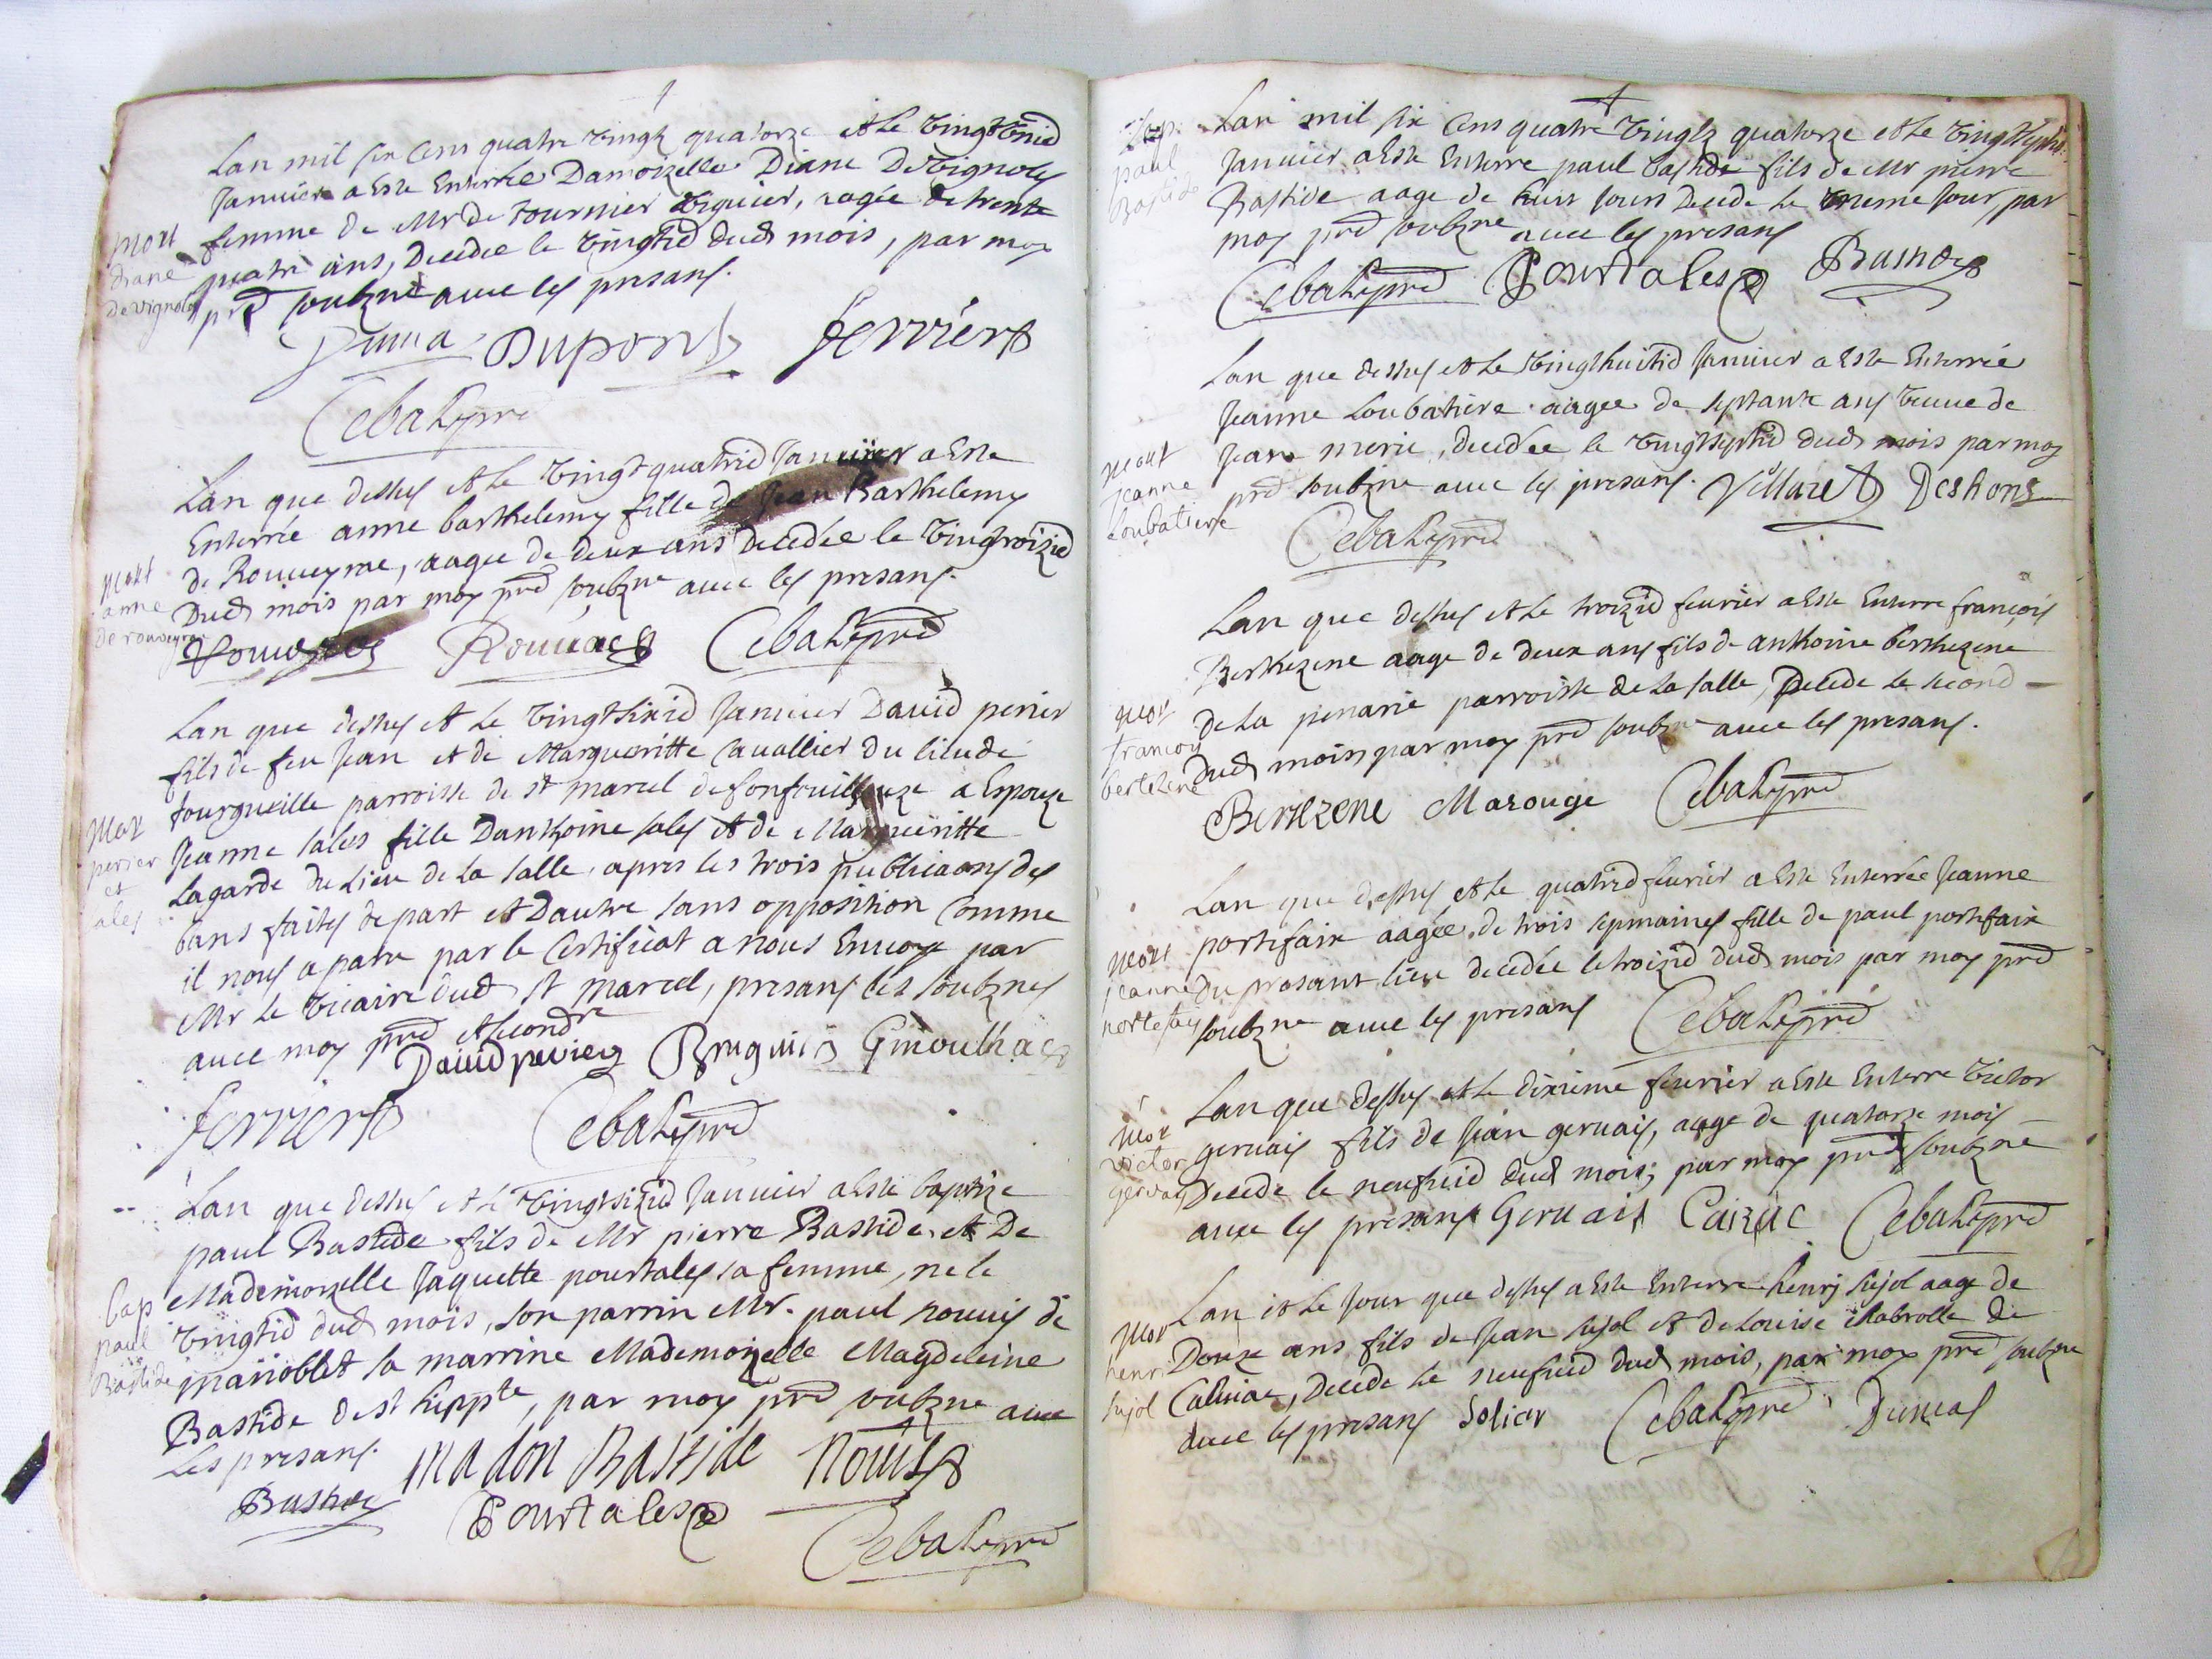 Lan mil six Cens quatre vingtz quatorze et le vingt
Janvier a Este Enterrée Damoizelle Diane De vignoles
femme de Mr de tournier viguier, aagée de trente
quatre ans, Decedée le vingtie dud mois, par moy
pre soubzne avec les presans.
mort
diane
de vignoles
Dupont ferriere
Cebalh pre
Lan que dessus et le vingt quatrie Janvier a Este
Enterrée anne barthelemy fille de Jean Barthelemy
de Rouveyrac, aagee de deux ans Decedée le vingtroizie
Dud mois par moy pre soubzne avec les presans.
mort
anne
de rouveyrac
Cebalh pre
Lan que dessus et le vingtsixie Janvier David perier
fils de feu Jean et de Margueritte Cavallier du lieu de
fourgueille parroisse de st marcel de fonfouillouze a Espouze
Jeanne sales fille Danthoine sales et de Margueritte
Lagarde du Lieu de La salle, apres les trois publicaons des
bans faites de part et Dautre sans opposition Comme
il nous a patu par le Certificat a nous Envoye par
Mr le vicaire dud st marcel, presans les soubznes
avec moy pre et secondre
mar
perier
et
sales
David perier Bruguier Ginoulhac
ferriere Cebalh pre
Lan que dessus et le vingtsizie Janvier a Este baptize
paul Bastide fils de Mr pierre Bastide et De
Mademoizelle Jaquette pourtales sa femme, ne le
vingtie dud mois, son parrin Mr. paul nouis de
manoblet sa marrine Mademoizelle Magdeleine
Bastide de st hippte, par moy pre soubzne avec
Les presans.
bap
paul
Bastide
madon Bastide nouis
Bastide Pourtales
Cebalh pre
Lan mil six Cens quatre vingtz quatorze et le vingtsept
Janvier a Este Enterre paul bastide fils de Mr pierre
Bastide aage de huit jours Decede le meme jour, par
moy pre soubzne avec les presans
paul
Bastide
Cebalh pre Pourtales Bastide
Lan que dessus et le vingthuitie Janvier a Este Enterrée
Jeanne Loubatiere aagee de septante ans veuve de
Jean merie, decedée le vingtseptie dud mois par moy
pre soubzne avec les presans. Villaret Deshons
mort
jeanne
loubatiere
Cebalh pre
Lan que dessus et le troizie fevrier a Este Enterre françois
Berthezene aage de deux ans fils de anthoine berthezene
de La penarie parroisse de La salle, Decede le second
dud mois par moy pre soubzne avec les presans.
mor
francois
bertezene
Bertezene Marouge Cebalh pre
Lan que dessus et le quatrie fevrier a Este Enterrée Jeanne
portefaix aagée de trois sepmaines fille de paul portefaix
du presant lieu decedée le troizie dud mois par moy pre
soubzne avec les presans Cebalh pre
mort
jeanne
portefais
Lan que dessus et le dixieme fevrier a Este Enterre victor
gervais fils de Jean gervais, aage de quatorze mois
Decede le neufvie dud mois; par moy pre soubzne
avec les presans Gervais Cazac Cebalh pre
mor
victor
gervais
Lan et le jour que dessus a Este Enterre henry sujol aage de
Douze ans fils de Jean sujol et de Louise Chabrolle de
Calviac, Decede le neufvie dud mois, par moy pre soubzne
avec les presans Solier Cebalh pre Dumas
mor
henri
sujol